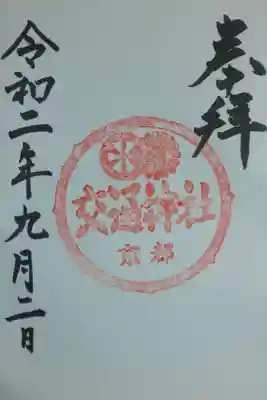 奉拝
交通神社
京都
令和二年九月二日